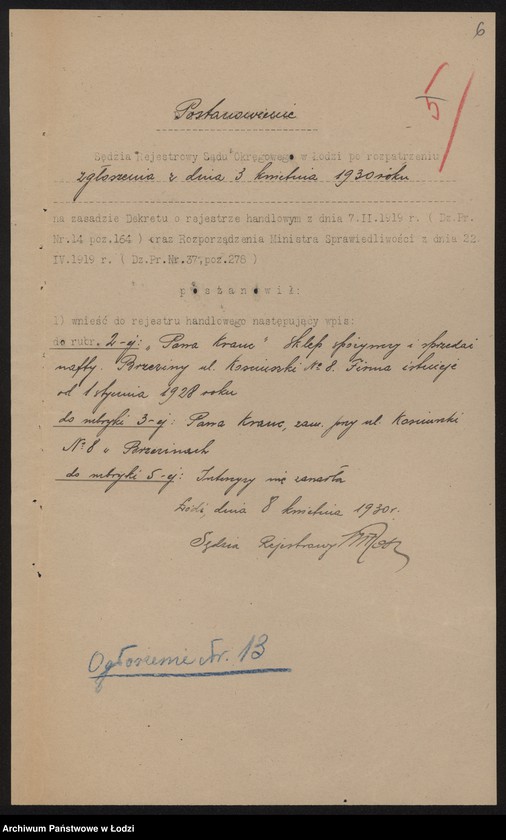 6
5
Postanowienie
Sędzia Rejestrowy Sądu Okręgowego w Łodzi po rozpatrzeniu
zgłoszenia z dnia 3 kwietnia 1930 roku
na zasadzie Dekretu o rejestrze handlowym z dnia 7.II.1919 r. ( Dz.Pr.
Nr.14 poz.164 ) oraz Rozporządzenia Ministra Sprawiedliwości z dnia 22.
IV.1919 r. ( Dz.Pr.Nr.37,poz.276 )
p o s t a n o w i ł:
1) wnieść do rejestru handlowego następujący wpis:
do rubr. 2-ej: „Pawa Krauc" Sklep spożywczy i sprzedaż
nafty. Brzeziny ul. Kościuszki № 8. Firma istnieje
od 1 stycznia 1928 roku
do rubryki 3-ej: Pawa Krauc, zam. przy ul. Kościuszki
№ 8 w Brzezinach
do rubryki 5-ej: Intercyzy nie zawarła
Łódź, dnia 8 kwietnia 1930 r.
Sędzia Rejestrowy
Ogłoszenie Nr. 13
Archiwum Państwowe w Łodzi